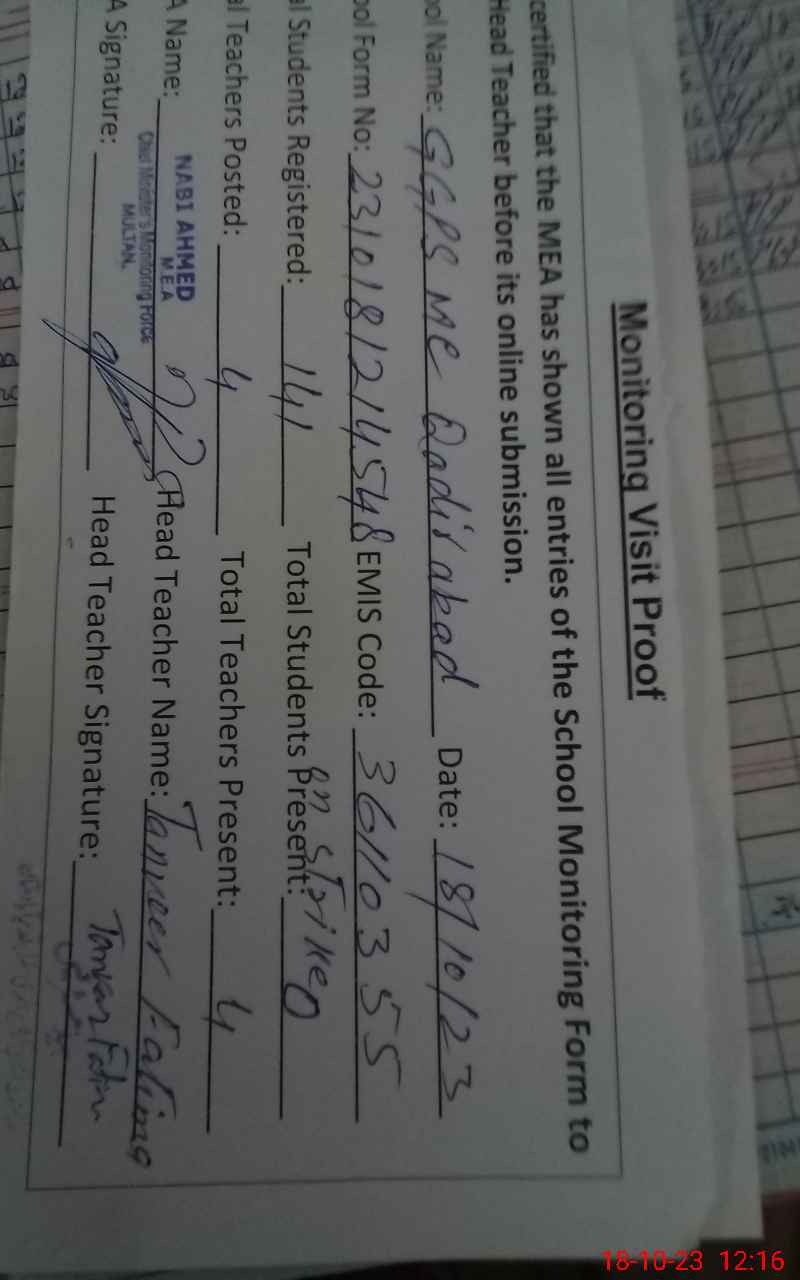 Monitoring Visit Proof
certified that the MEA has shown all entries of the School Monitoring Form to
Head Teacher before its online submission.
ool Name: GGPS MC Qadir abad Date: 18/10/23
ool Form No: 2310181214548 EMIS Code: 36110355
al Students Registered: 141 Total Students Present: on strike 0
al Teachers Posted: 4 Total Teachers Present: 4
A Name: Head Teacher Name: Tanveer Fatima
NABI AHMED
M.E.A
Chief Minister's Monitoring Force
MULTAN.
A Signature: Head Teacher Signature:
18-10-23 12:16